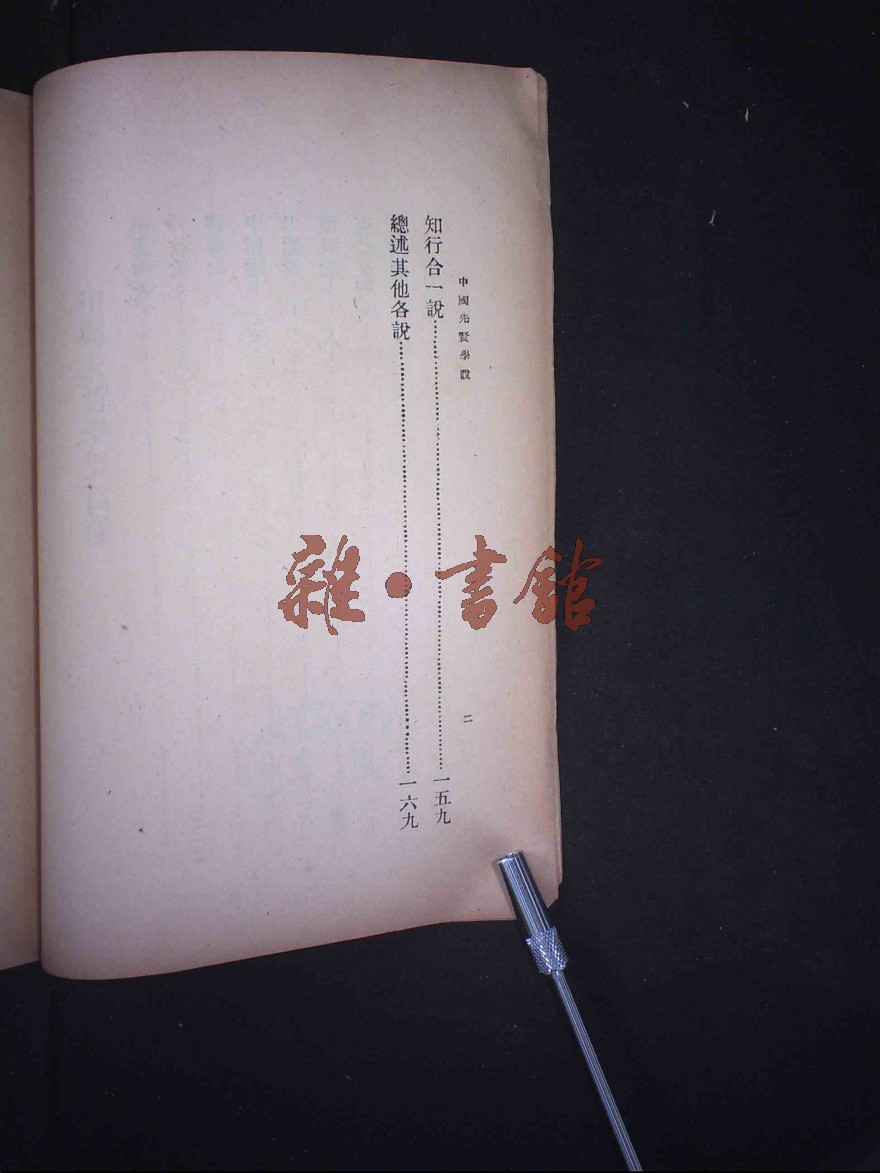 中國先賢學說
二
知行合一說……一五九
總述其他各說……一六九
雜•書館